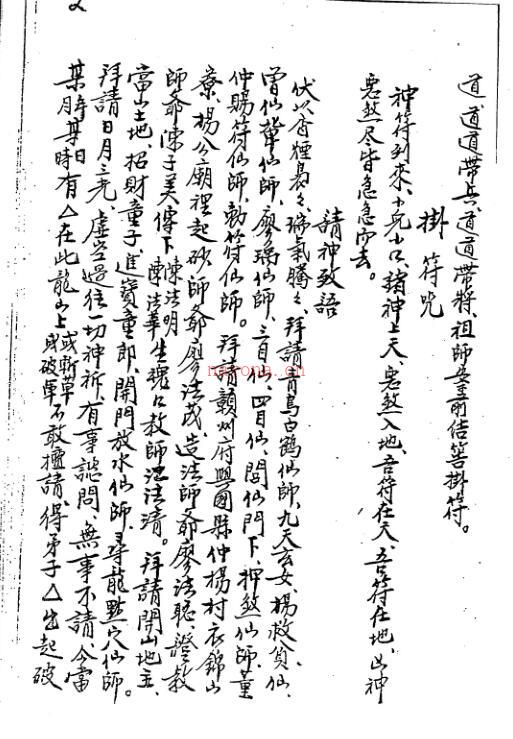 道、道道帶兵、道道帶將、祖師壇前佶筶掛符。
掛符咒
神符到來、小兒小口、諸神上天、惡煞入地、吾符在天、吾符在地、凶神
惡煞尽皆急急而去。
請神致語
伏以香煙裊々、瑞氣騰々、拜請青烏白鶴仙師、九天玄女、楊救貧仙、
曾仙輩仙師、廖瑀仙師、三目仙、四目仙、閭仙門下、押煞仙師、董
仲賜符仙師、勅符仙師。拜請贛州府興國縣仲楊村衣錦山
寮、楊公廟裡起砂師爺廖法茂、造法師爺廖法聪、證教
師爺陳子美傳下陳法明陳法華生魂口教師江法清。拜請開山地主、
當山土地、招財童子、進寶童郎、開門放水仙師、尋龍點穴仙師。
拜請日月三光、虛空過往一切神祈、有事諗問、無事不請、今當
某年某月某日某時有△在此龍山上或斬草或破軍不敢擅請、得弟子△出起破
2
nayona.cn